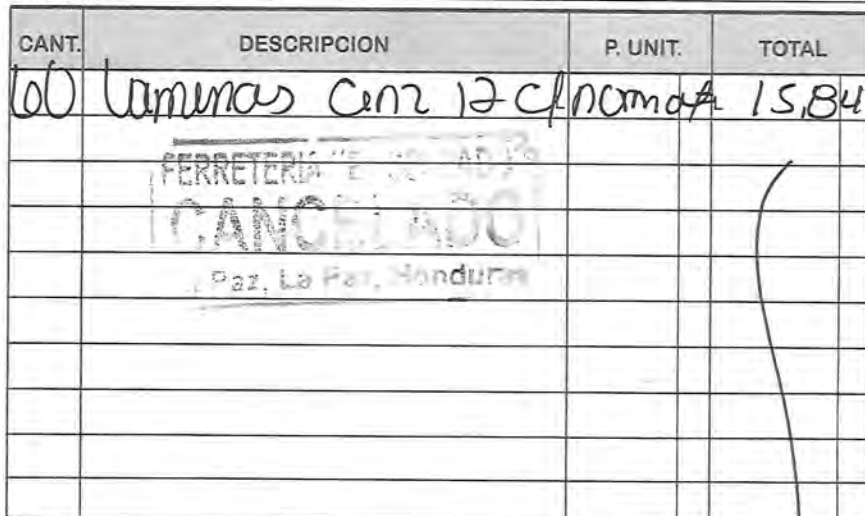 CANT. DESCRIPCION P. UNIT. TOTAL
60 Laminas 12 15,84
FERRETERIA
CANCELADO
Paz, La Paz, Honduras